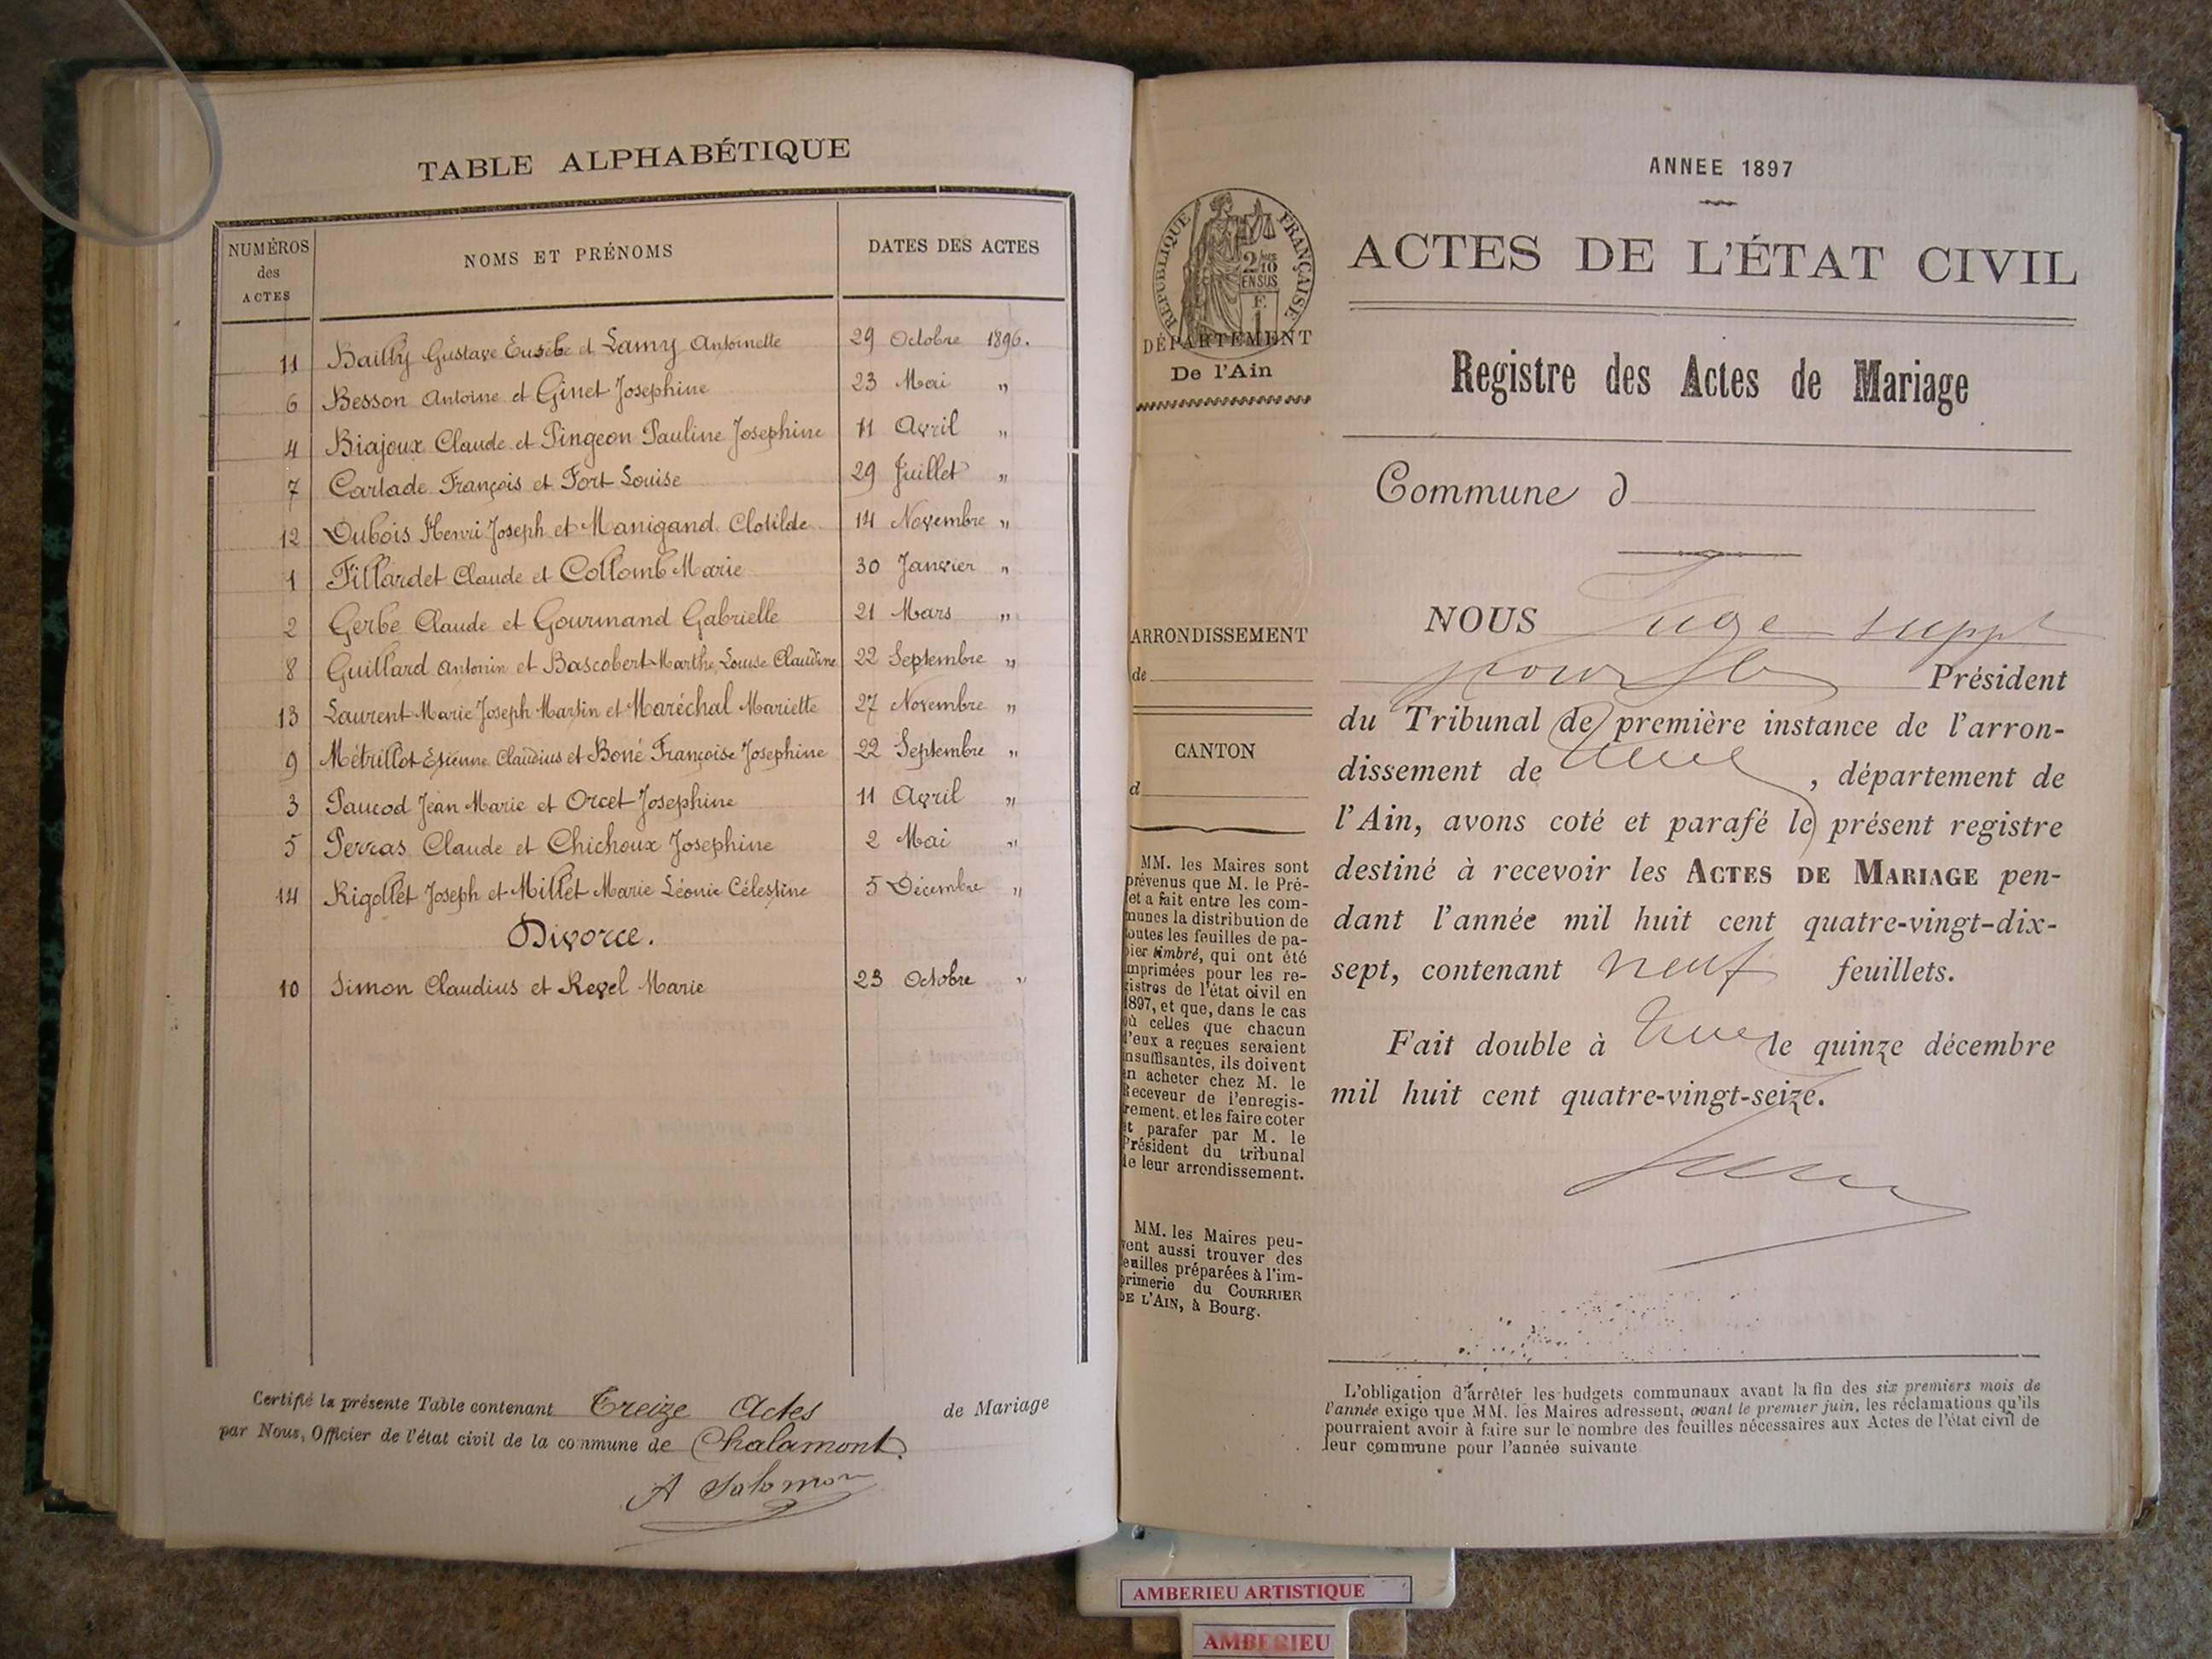 TABLE ALPHABÉTIQUE
NUMÉROS des ACTES
NOMS ET PRÉNOMS
DATES DES ACTES
11 Bailly Gustave Eusèbe et Lamy Antoinette 29 Octobre 1896.
6 Besson Antoine et Ginet Josephine 23 Mai "
4 Biajoux Claude et Pingeon Pauline Josephine 11 Avril "
7 Carlade François et Fort Louise 29 Juillet "
12 Dubois Henri Joseph et Manigand Clotilde 14 Novembre "
1 Fillardet Claude et Collomb Marie 30 Janvier "
2 Gerbe Claude et Gourmand Gabrielle 21 Mars "
8 Guillard Antonin et Bascobert Marthe Louise Claudine 22 Septembre "
13 Laurent Marie Joseph Martin et Maréchal Mariette 27 Novembre "
9 Métrillot Etienne Claudius et Boné Françoise Josephine 22 Septembre "
3 Paucod Jean Marie et Orcet Josephine 11 Avril "
5 Perras Claude et Chichoux Josephine 2 Mai "
14 Rigollet Joseph et Millet Marie Léonie Célestine 5 Décembre "
Divorce.
10 Simon Claudius et Revel Marie 23 Octobre "
Certifié la présente Table contenant Treize Actes de Mariage
par Nous, Officier de l'état civil de la commune de Chalamont.
A Salomon
RÉPUBLIQUE FRANÇAISE
2/10
EN SUS
DÉPARTEMENT
De l'Ain
ARRONDISSEMENT
de
CANTON
d
MM. les Maires sont
prévenus que M. le Pré-
et a fait entre les com-
munes la distribution de
outes les feuilles de pa-
pier timbré, qui ont été
imprimées pour les re-
gistres de l'état civil en
1897, et que, dans le cas
où celles que chacun
d'eux a reçues seraient
insuffisantes, ils doivent
en acheter chez M. le
Receveur de l'enregis-
trement, et les faire coter
et parafer par M. le
Président du tribunal
de leur arrondissement.
MM. les Maires peu-
vent aussi trouver des
feuilles préparées à l'im-
primerie du COURRIER
DE L'AIN, à Bourg.
ANNEE 1897
ACTES DE L'ÉTAT CIVIL
Registre des Actes de Mariage
Commune d
NOUS Juge suppt
pour le Président
du Tribunal de première instance de l'arron-
dissement de , département de
l'Ain, avons coté et parafé le présent registre
destiné à recevoir les ACTES DE MARIAGE pen-
dant l'année mil huit cent quatre-vingt-dix-
sept, contenant neuf feuillets.
Fait double à le quinze décembre
mil huit cent quatre-vingt-seize.
L'obligation d'arrêter les budgets communaux avant la fin des six premiers mois de
l'année exige que MM. les Maires adressent, avant le premier juin, les réclamations qu'ils
pourraient avoir à faire sur le nombre des feuilles nécessaires aux Actes de l'état civil de
leur commune pour l'année suivante
AMBERIEU ARTISTIQUE
AMBERIEU